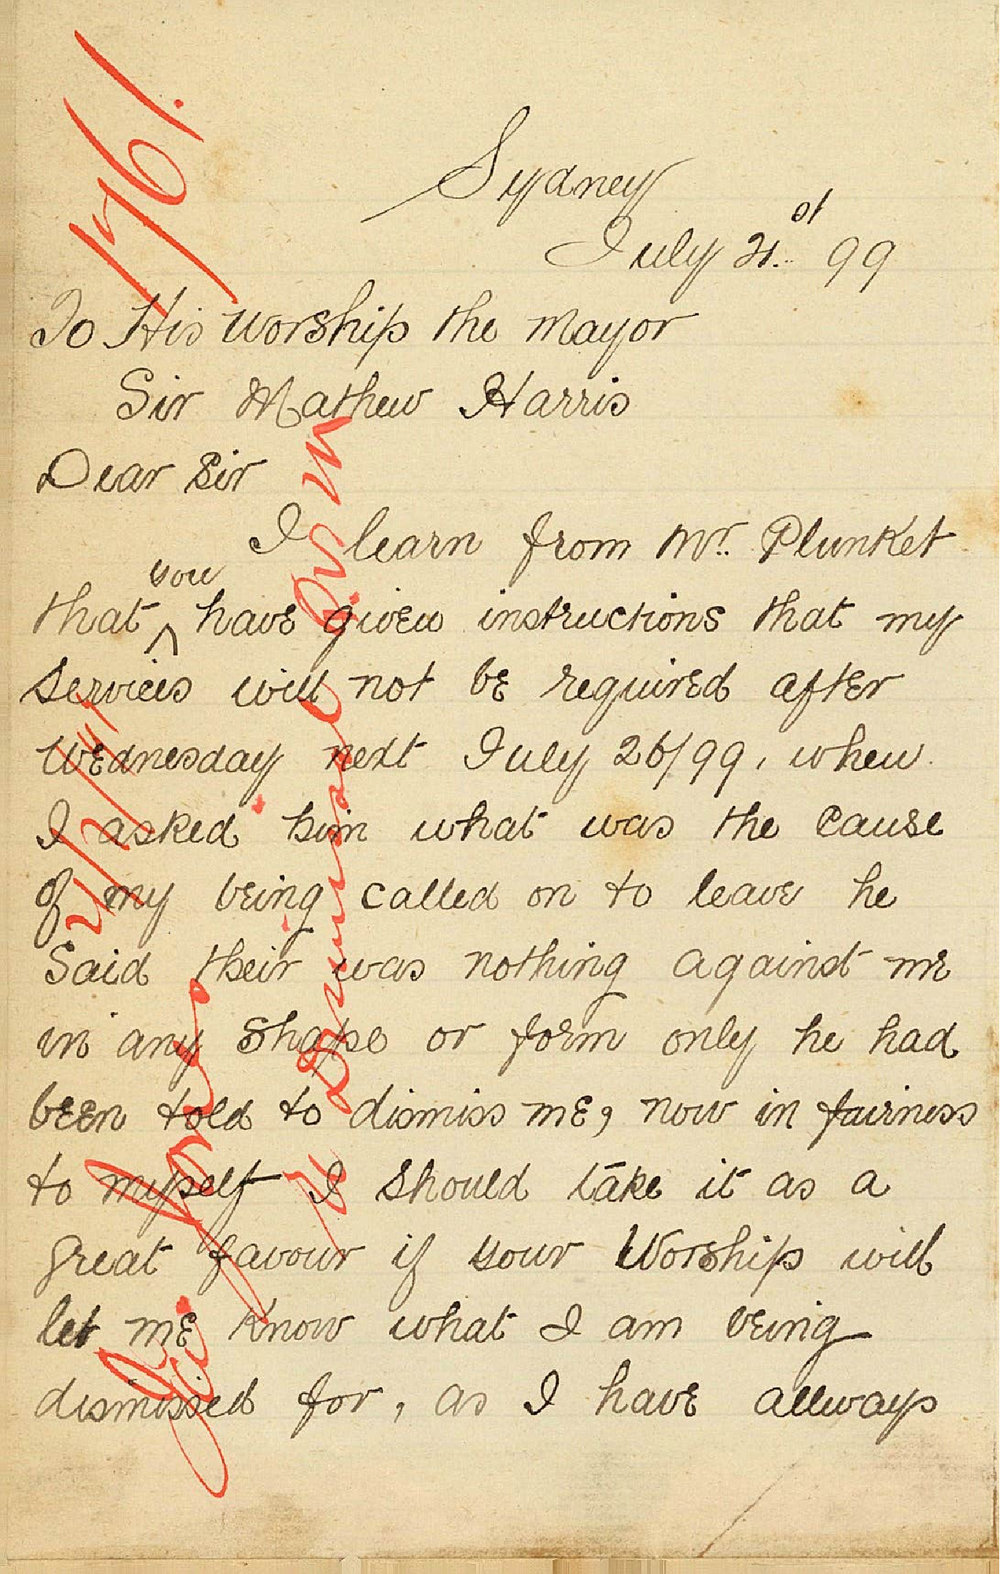 1761.
Sydney
July 21st 99
To His Worship the Mayor
Sir Mathew Harris
Dear Sir
I learn from Mr. Plunket
that you have given instructions that my
services will not be required after
Wednesday next July 26/99, when
I asked him what was the cause
of my being called on to leave he
said their was nothing against me
in any shape or form only he had
been told to dismiss me, now in fairness
to myself I should take it as a
great favour if your Worship will
let me know what I am being
dismissed for, as I have allways
re Dismissal from